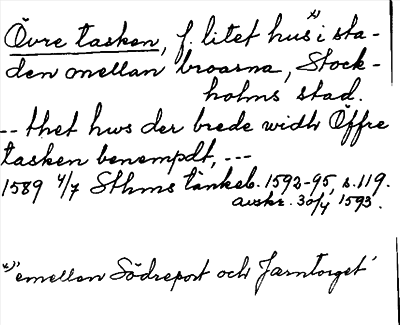 Övre tasken, f. litet hus x) i sta-
den mellan broarna, Stock-
holms stad.
-- thet hws der brede widh Öffre
tasken benempdt, ---
1589 4/7 Sthms tänkeb. 1592-95, s. 119.
avskr. 30/4 1593.
x) "emellan Södreport och Jærntorget"